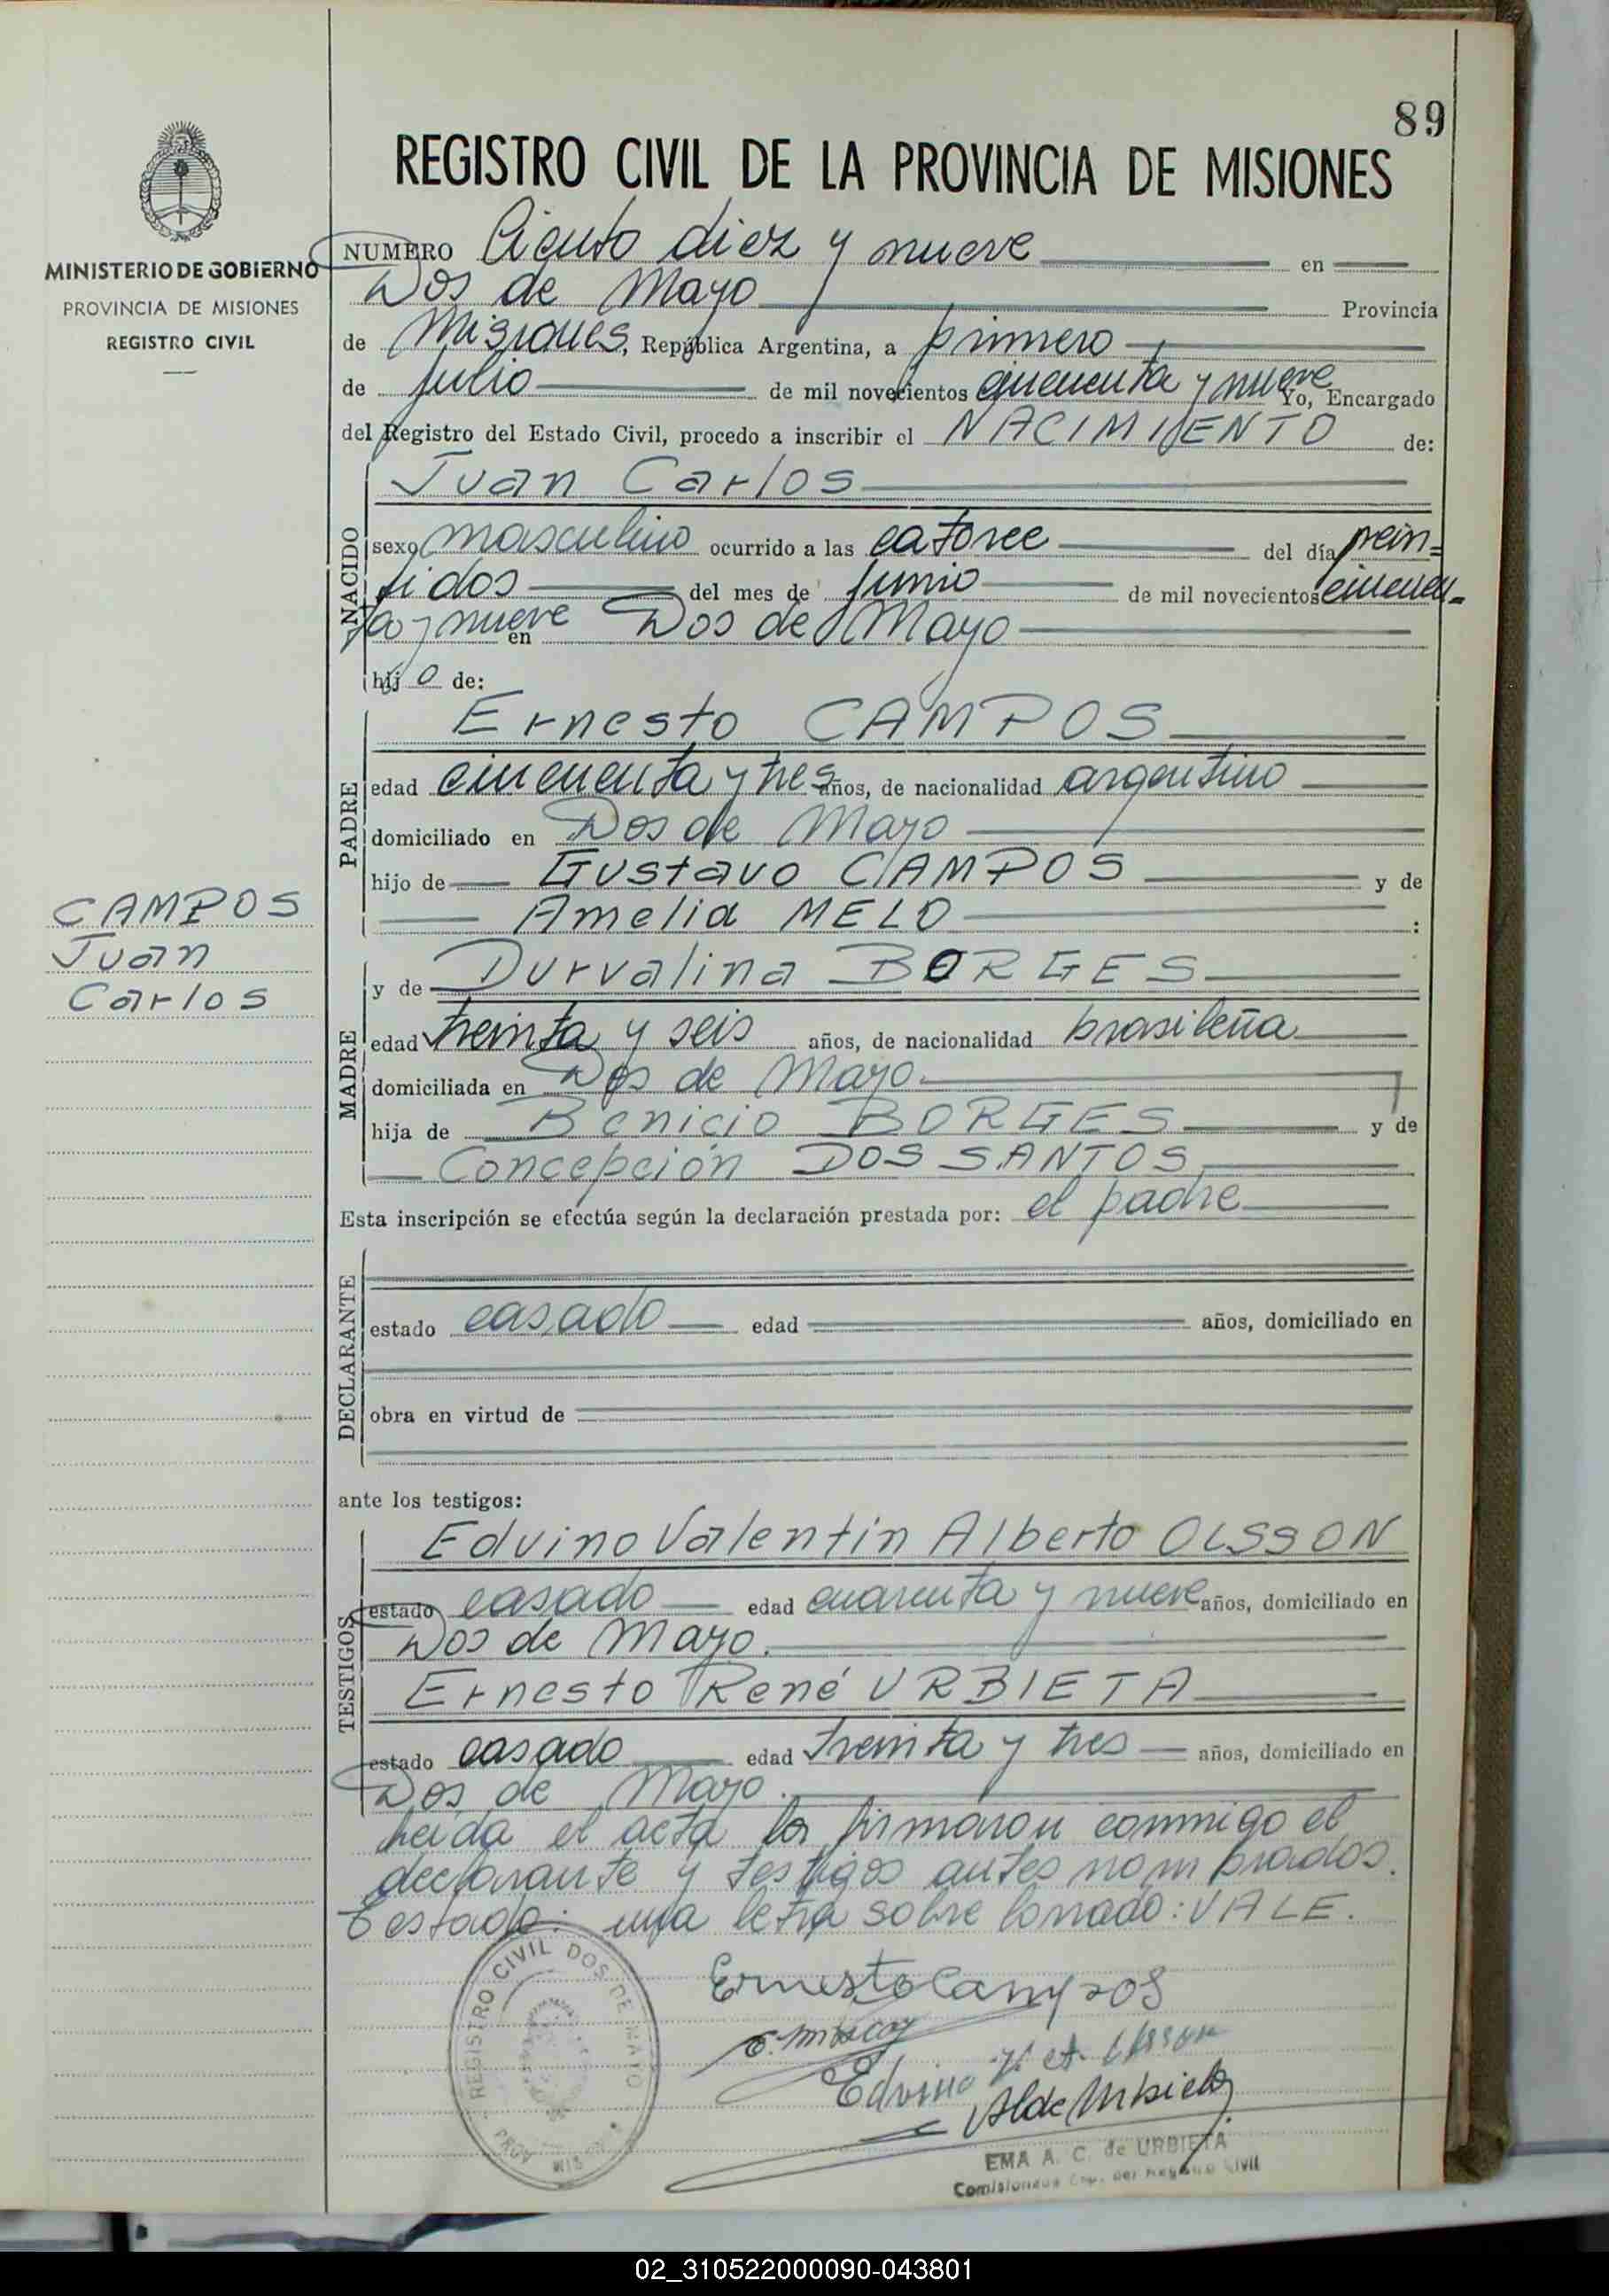 89
REGISTRO CIVIL DE LA PROVINCIA DE MISIONES
MINISTERIO DE GOBIERNO
PROVINCIA DE MISIONES
REGISTRO CIVIL
NUMERO Ciento diez y nueve en
Dos de Mayo Provincia
de Misiones, República Argentina, a primero
de julio de mil novecientos cincuenta y nueve Yo, Encargado
del Registro del Estado Civil, procedo a inscribir el NACIMIENTO de:
NACIDO
Juan Carlos
sexo masculino ocurrido a las catorce del día vein=
tidos del mes de junio de mil novecientos cincuen-
ta y nueve en Dos de Mayo
hijo de:
PADRE
Ernesto CAMPOS
edad cincuenta y tres años, de nacionalidad argentino
domiciliado en Dos de Mayo
hijo de Gustavo CAMPOS y de
Amelia MELO :
CAMPOS
Juan
Carlos
MADRE
y de Durvalina BORGES
edad treinta y seis años, de nacionalidad brasileña
domiciliada en Dos de Mayo
hija de Benicio BORGES y de
Concepción DOS SANTOS
Esta inscripción se efectúa según la declaración prestada por: el padre
DECLARANTE
estado casado edad años, domiciliado en
obra en virtud de
ante los testigos:
TESTIGOS
Edvino Valentin Alberto OLSSON
estado casado edad cuarenta y nueve años, domiciliado en
Dos de Mayo.
Ernesto René URBIETA
estado casado edad treinta y tres años, domiciliado en
Dos de Mayo.
Leida el acta la firmaron conmigo el
declarante y testigos antes nombrados.
Testado: una letra sobre borrado: VALE.
REGISTRO CIVIL DOS DE MAYO
Ernesto Campos
Edvino V. A. Olsson
EMA A. C. de URBIETA
del Registro Civil
02_310522000090-043801